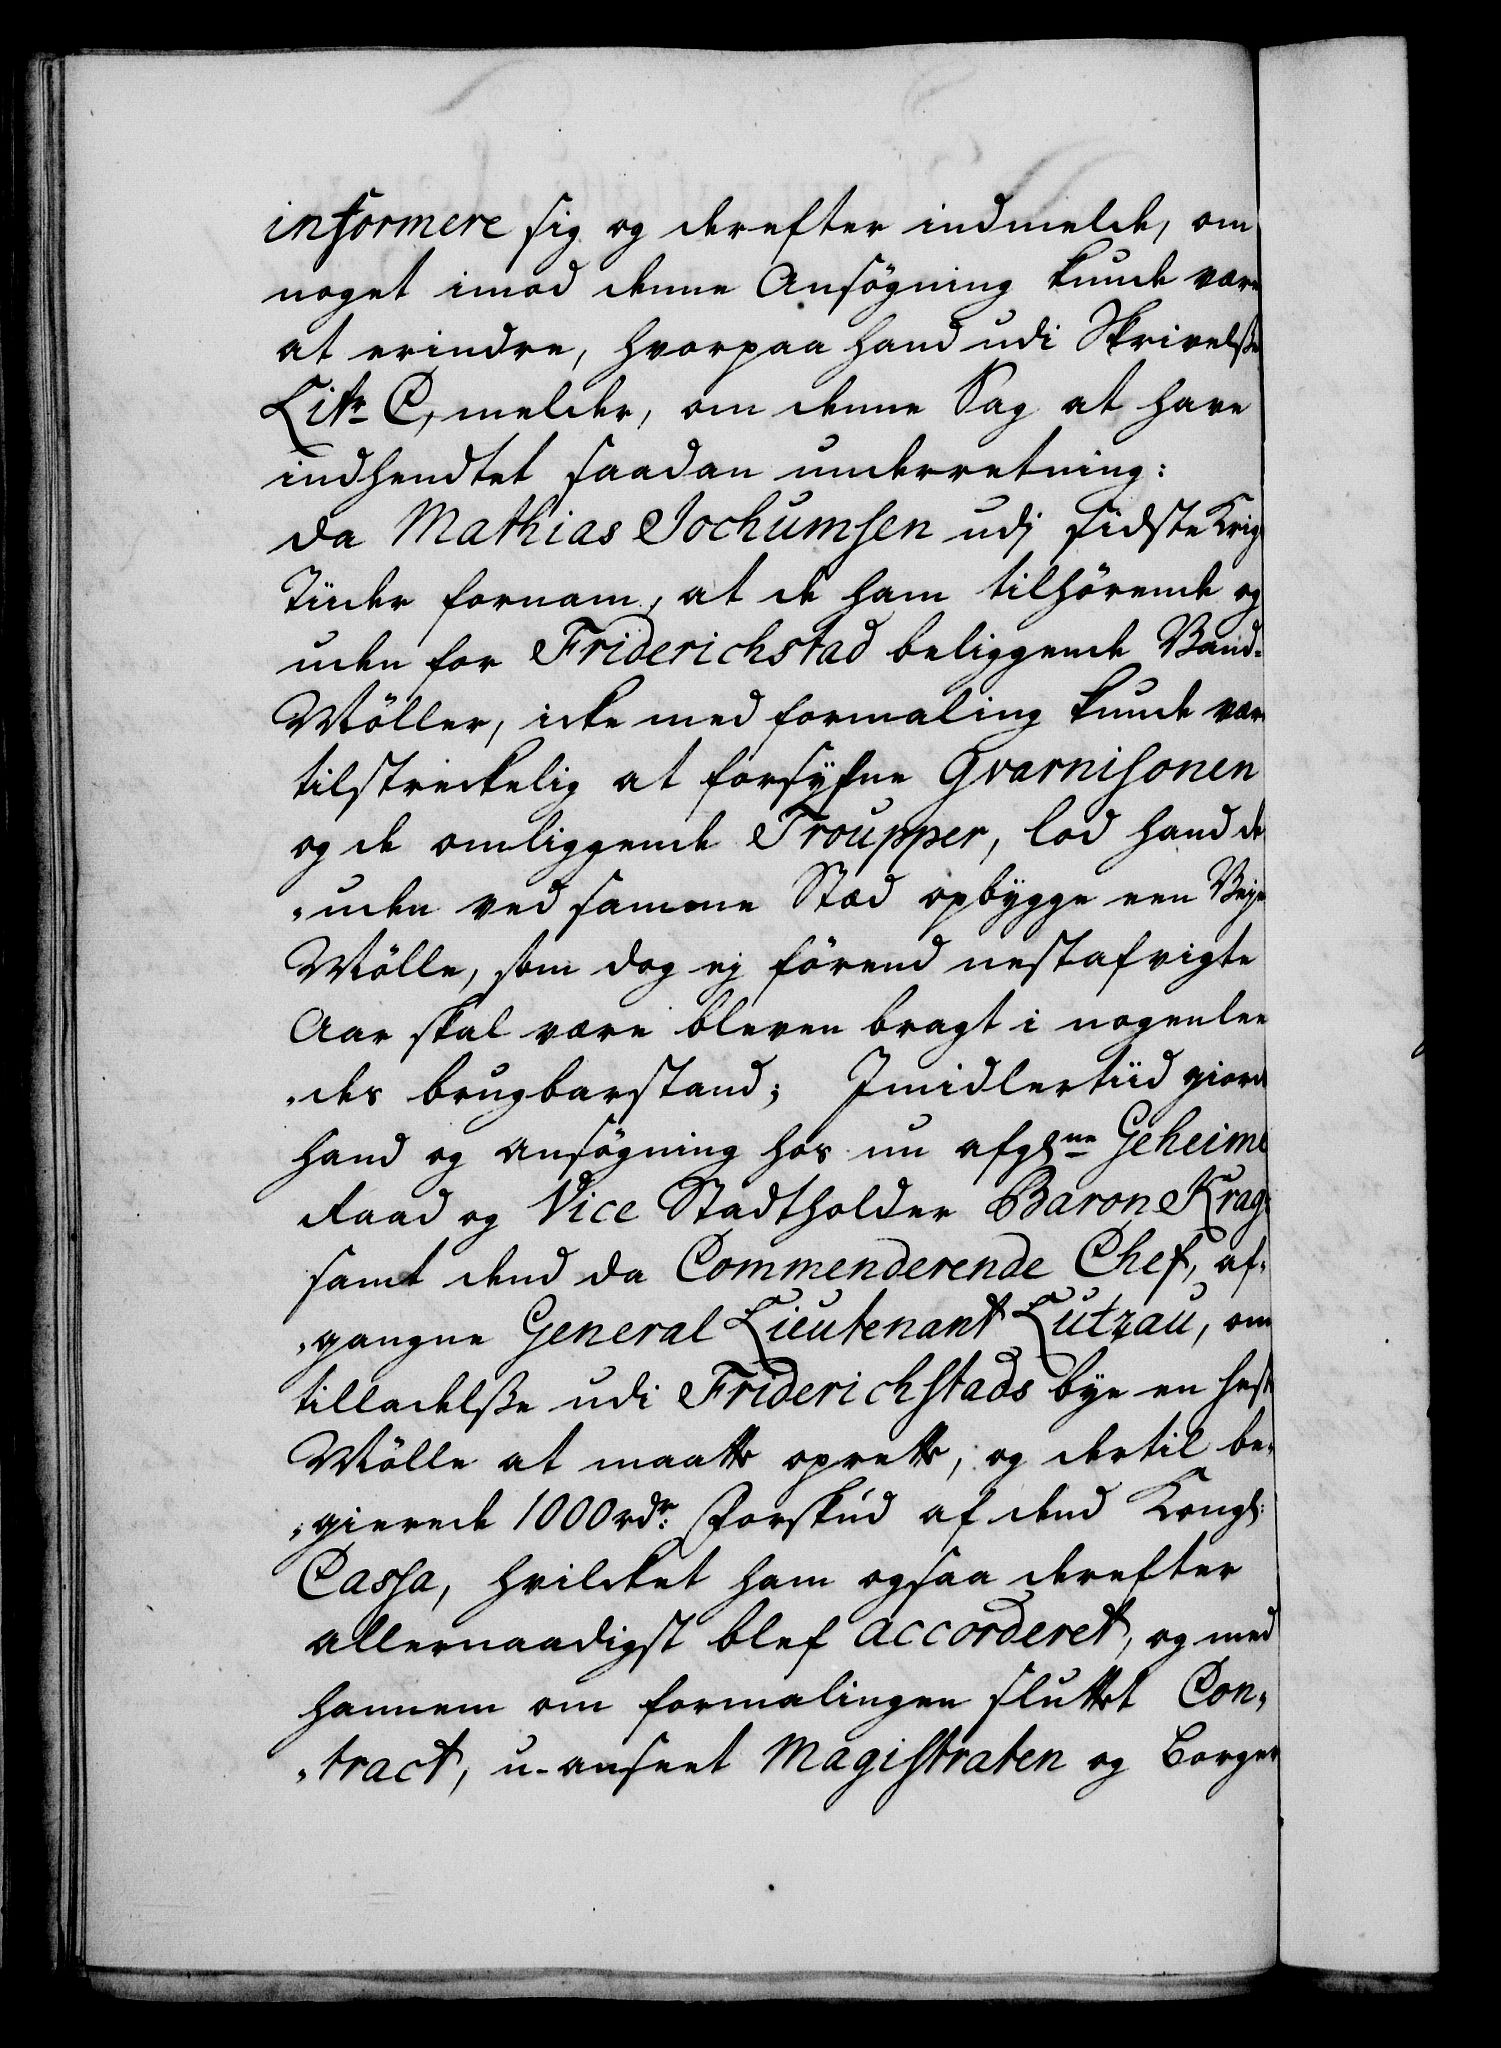 informere sig og derefter indmelde, om
noget imod denne Ansögning kunde være
at erindre, hvorpaa hand udi Skrivelsße
Litr C, melder, om denne Sag at have
indhendtet saadan underretning:
da Mathias Jochumsen udj sidste Krigs
Tiider fornam, at de ham tilhörende og
uden for Friderichstad beliggende Vand-
Möller, icke med formaling kunde være
tilstreckelig at forsÿfne Gvarnisonen
og de omliggende Troupper, lod hand de
"uden ved samme Stæd opbÿgge een Vejr
Mölle, som dog ej förend nestafvigte
Aar skal være bleven bragt i nogenlee
"des brugbarstand; Imidlertiid giorde
hand og ansögning hos nu afgln̄e Geheime
Raad og Vice Stadtholder Baron Krag
samt dend da Commenderende Chef, af-
"gangne General Lieutenant Lützau, om
tilladelße udi Friderichstads bye en Hest
Mölle at maatte oprette, og dertil be-
"gierede 1000 rdr: Forskud af dend Kongl:
Cassa, hvilcket ham ogsaa derefter
allernaadigst blef accorderet, og med
hannem om formalingen sluttet Con-
"tract, u-anseet Magistraten og Borger